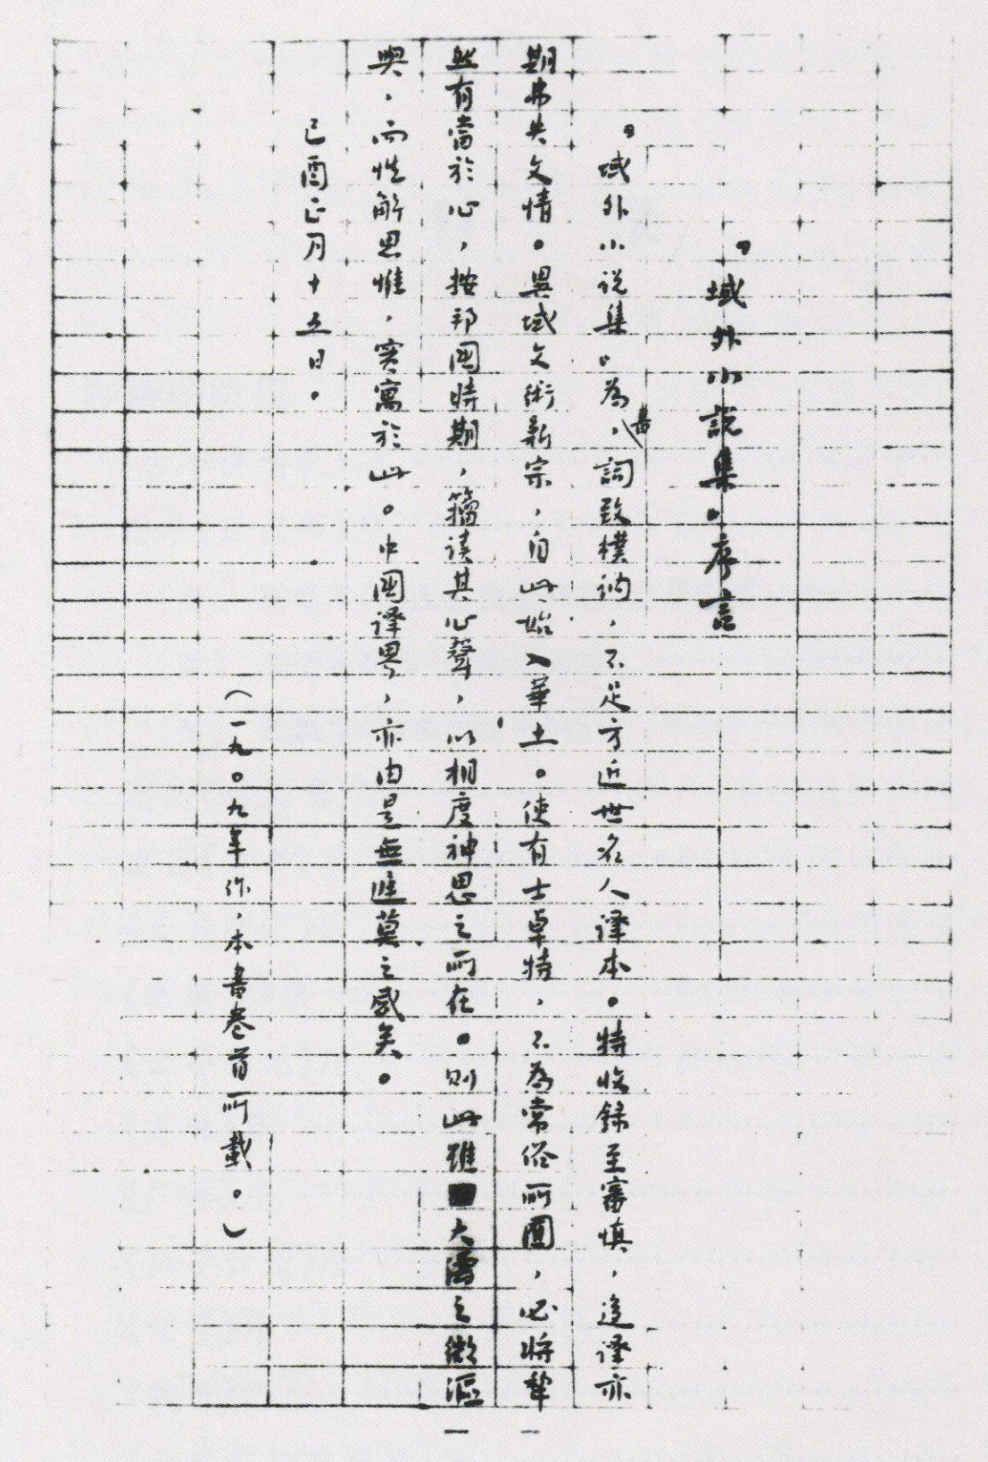 “域外小説集”序言
“域外小说集”為書，詞致樸訥，不足方近世名人譯本。特收錄至審慎，迻譯亦
期弗失文情。異域文術新宗，自此始入華土。使有士卓特，不為常俗所囿，必將犂
然有當於心，按邦國時期，籀讀其心聲，以相度神思之所在。則此雖大濤之微漚
與，而性解思惟，实寓於此。中國譯界，亦由是無遲莫之感矣。
己酉正月十五日。
（一九〇九年作，本書卷首所載。）